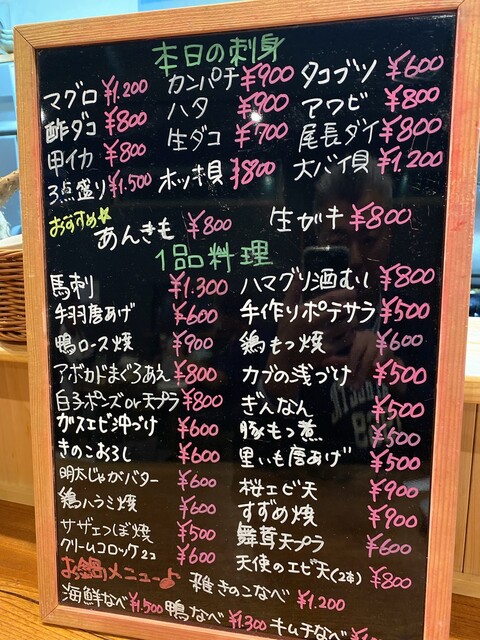 本日の刺身
マグロ ¥1.200 カンパチ ¥900 タコブツ ¥600
酢ダコ ¥800 ハタ ¥900 アワビ ¥800
甲イカ ¥800 生ダコ ¥700 尾長ダイ ¥800
3点盛り ¥1.500 ホッキ貝 ¥800 大バイ貝 ¥1.200
おすすめ☆ あんきも ¥800 生ガキ ¥800
1品料理
馬刺 ¥1.300 ハマグリ酒むし ¥800
手羽唐あげ ¥600 手作りポテサラ ¥500
鴨ロース焼 ¥900 鶏もつ焼 ¥600
アボカドまぐろあえ ¥800 カブの浅づけ ¥500
白子ポンズor天プラ ¥800 ぎんなん ¥500
ガスエビ沖づけ ¥600 豚もつ煮 ¥500
きのこおろし ¥600 里いも唐あげ ¥500
明太じゃがバター ¥600 桜エビ天 ¥900
鶏ハラミ焼 ¥600 すずめ焼 ¥900
サザエつぼ焼 ¥500 舞茸天プラ ¥600
クリームコロッケ2コ ¥600 天使のエビ天(2本) ¥800
お鍋メニュー♪ 雑きのこなべ ¥1.200
海鮮なべ ¥1.500 鴨なべ ¥1.300 キムチなべ